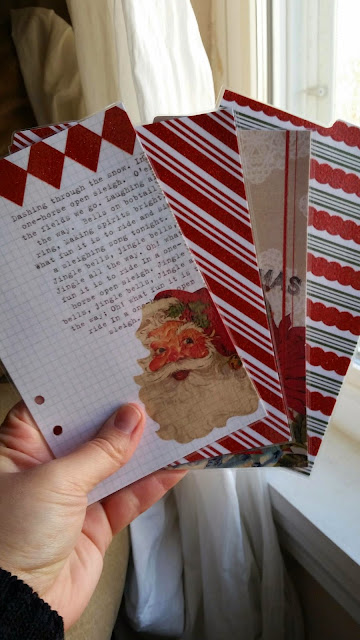 Dashing through the snow, In
one-horse open sleigh, O'
the fields we go, Laughing al
the way. Bells on bobtail
ring, Making spirits bright
What fun it is to ride and s
a sleighing song tonight
Jingle bells, jingle bells
jingle all the way! Oh! what
fun it is to ride In a one-
horse open sleigh. Jingle
bells, jingle bells, jingle
the way! Oh! what fun it is
ride In a one- pen
sleigh.
AS